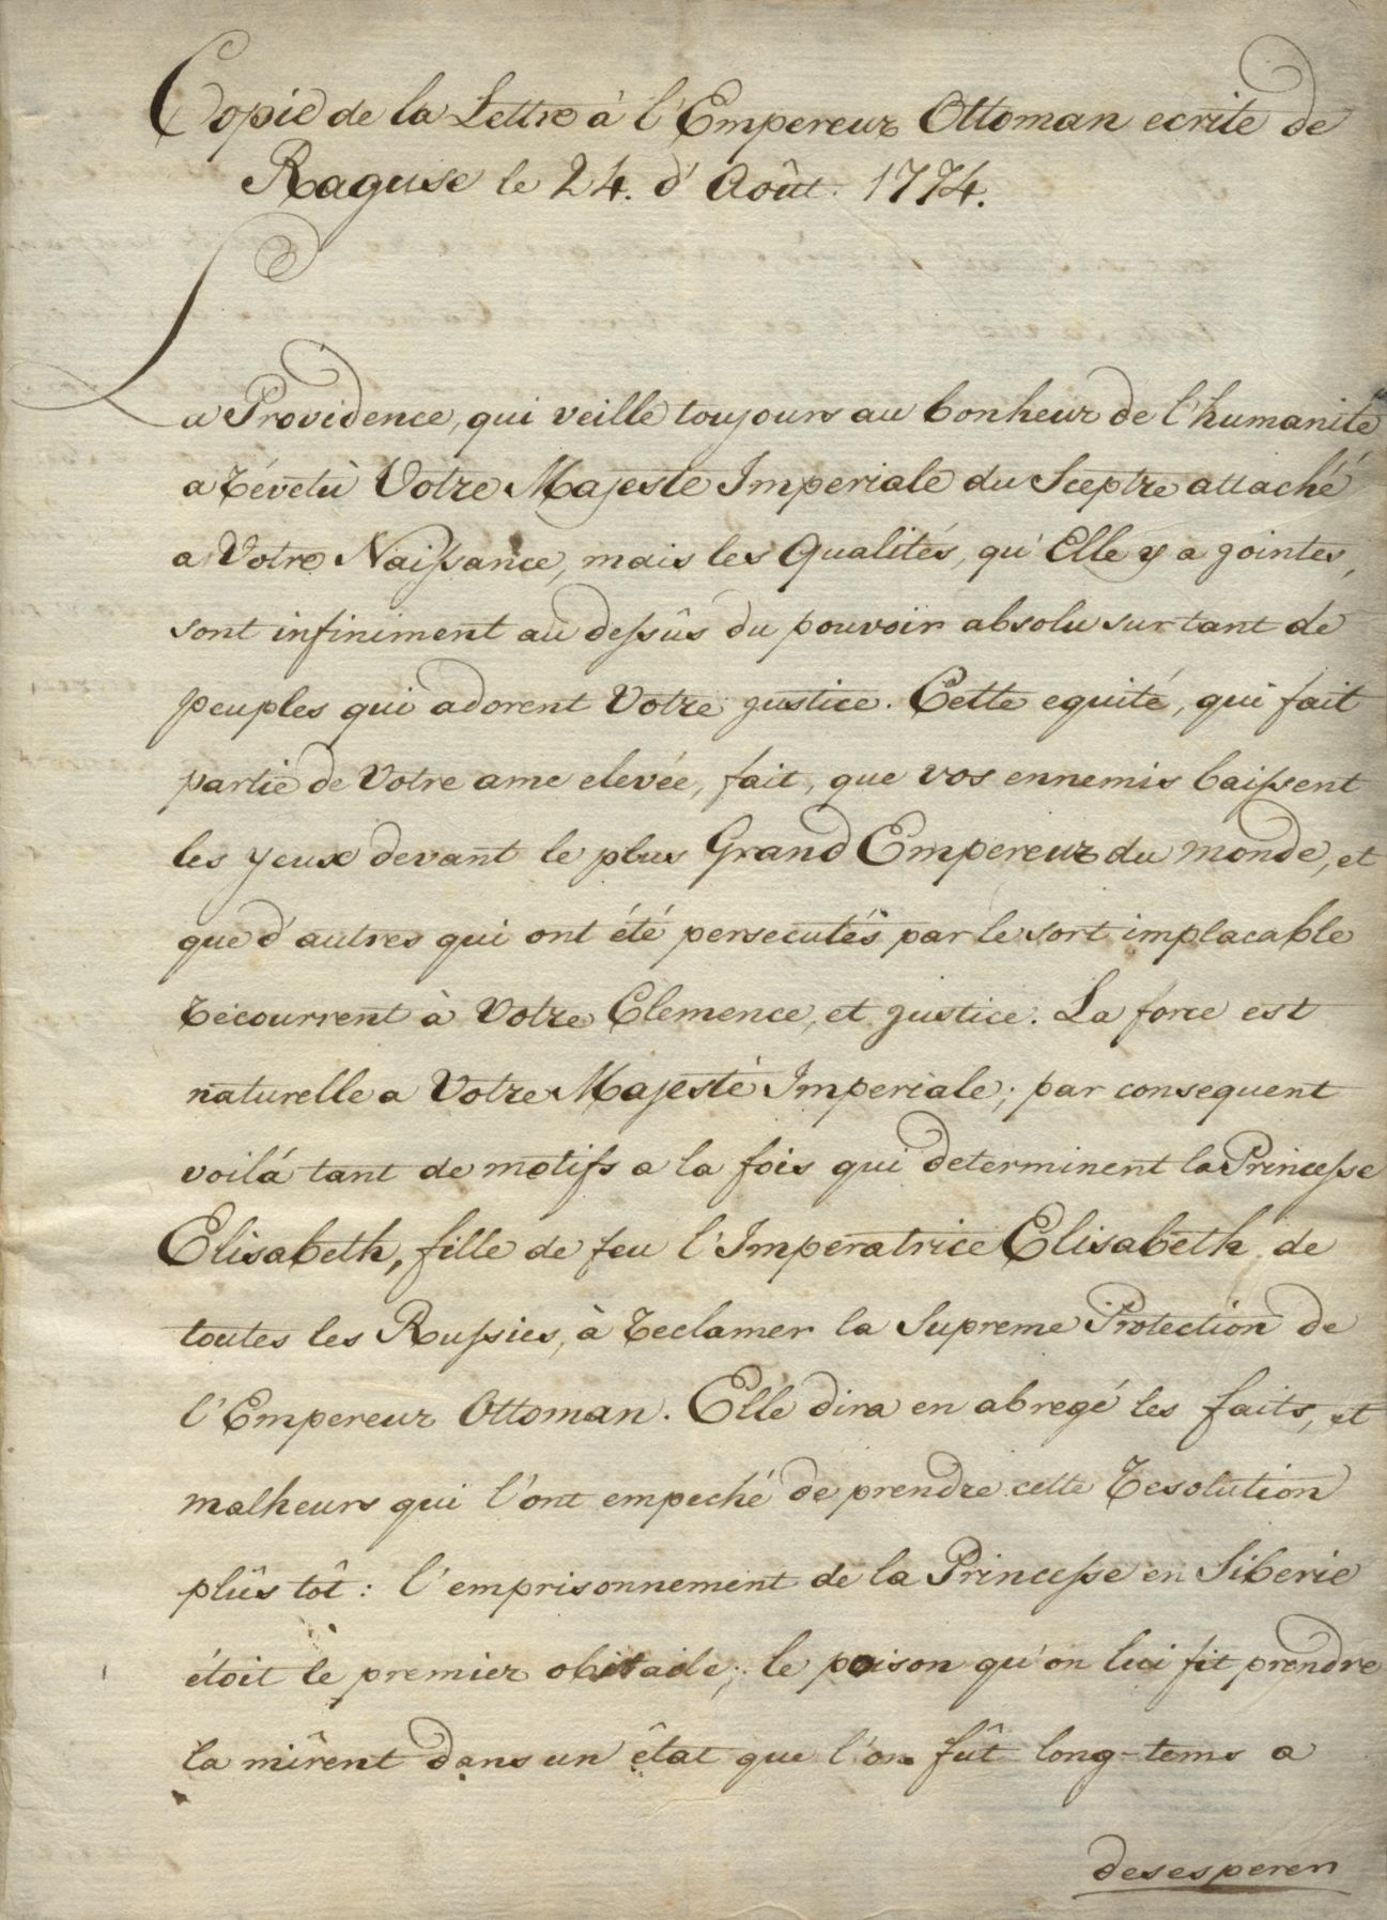 Copie de la Lettre à l'Empereur Ottoman ecrite de
Raguse le 24. d'Août. 1774.
La Providence, qui veille toujours au bonheur de l'humanité
a révetù Votre Majesté Imperiale du Sceptre attaché
a Votre Naissance, mais les Qualités, qu'Elle y a jointes,
sont infiniment au dessûs du pouvoir absolu sur tant de
peuples qui adorent Votre justice. Cette equité, qui fait
partie de Votre ame elevée, fait, que vos ennemis baissent
les yeux devant le plus Grand Empereur du monde, et
que d'autres qui ont été persecutés par le sort implacable
recourrent à Votre Clemence, et justice. La force est
naturelle a Votre Majesté Imperiale; par consequent
voilá tant de motifs a la fois qui determinent la Princesse
Elisabeth, fille de feu l'Imperatrice Elisabeth de
toutes les Russies, à reclamer la Supreme Protection de
l'Empereur Ottoman. Elle dira en abregé les faits, et
malheurs qui l'ont empeché de prendre cette resolution
plûs tôt: l'emprisonnement de la Princesse en Siberie
étoit le premier obstacle; le poison qu'on lui fit prendre
la mîrent dans un êtat que l'on fût long-tems a
desesperer